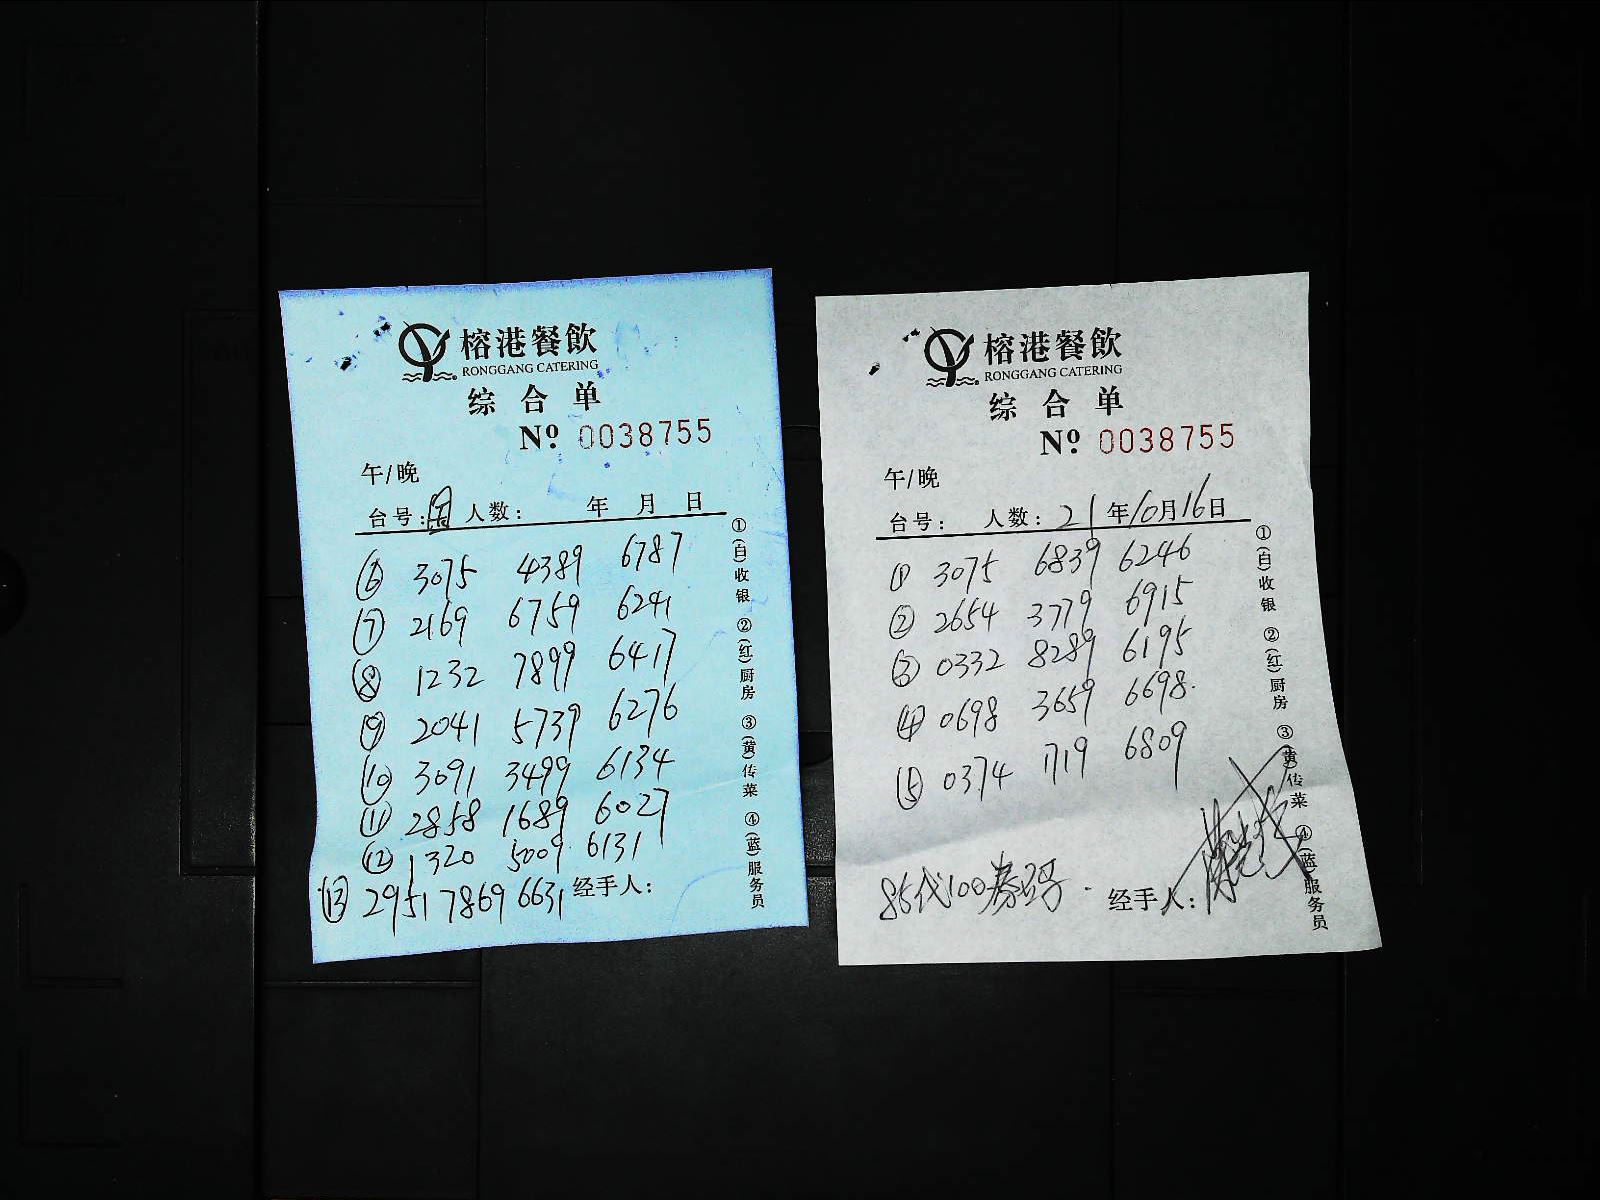 榕港餐飲
RONGGANG CATERING
综合单
Nº 0038755
午/晚
台号: 人数: 年 月 日
⑥ 3075 4389 6787
⑦ 2169 6759 6241
⑧ 1232 7899 6417
⑨ 2041 5739 6276
⑩ 3091 3499 6134
⑪ 2858 1689 6027
⑫ 1320 5009 6131
⑬ 2951 7869 6631
经手人:
①(白)收银 ②(红)厨房 ③(黄)传菜 ④(蓝)服务员
榕港餐飲
RONGGANG CATERING
综合单
Nº 0038755
午/晚
台号: 人数: 21年10月16日
① 3075 6839 6246
② 2654 3779 6915
③ 0332 8289 6195
④ 0698 3659 6698.
⑤ 0374 1719 6809
85代100券码.
经手人:
①(白)收银 ②(红)厨房 ③(黄)传菜 ④(蓝)服务员